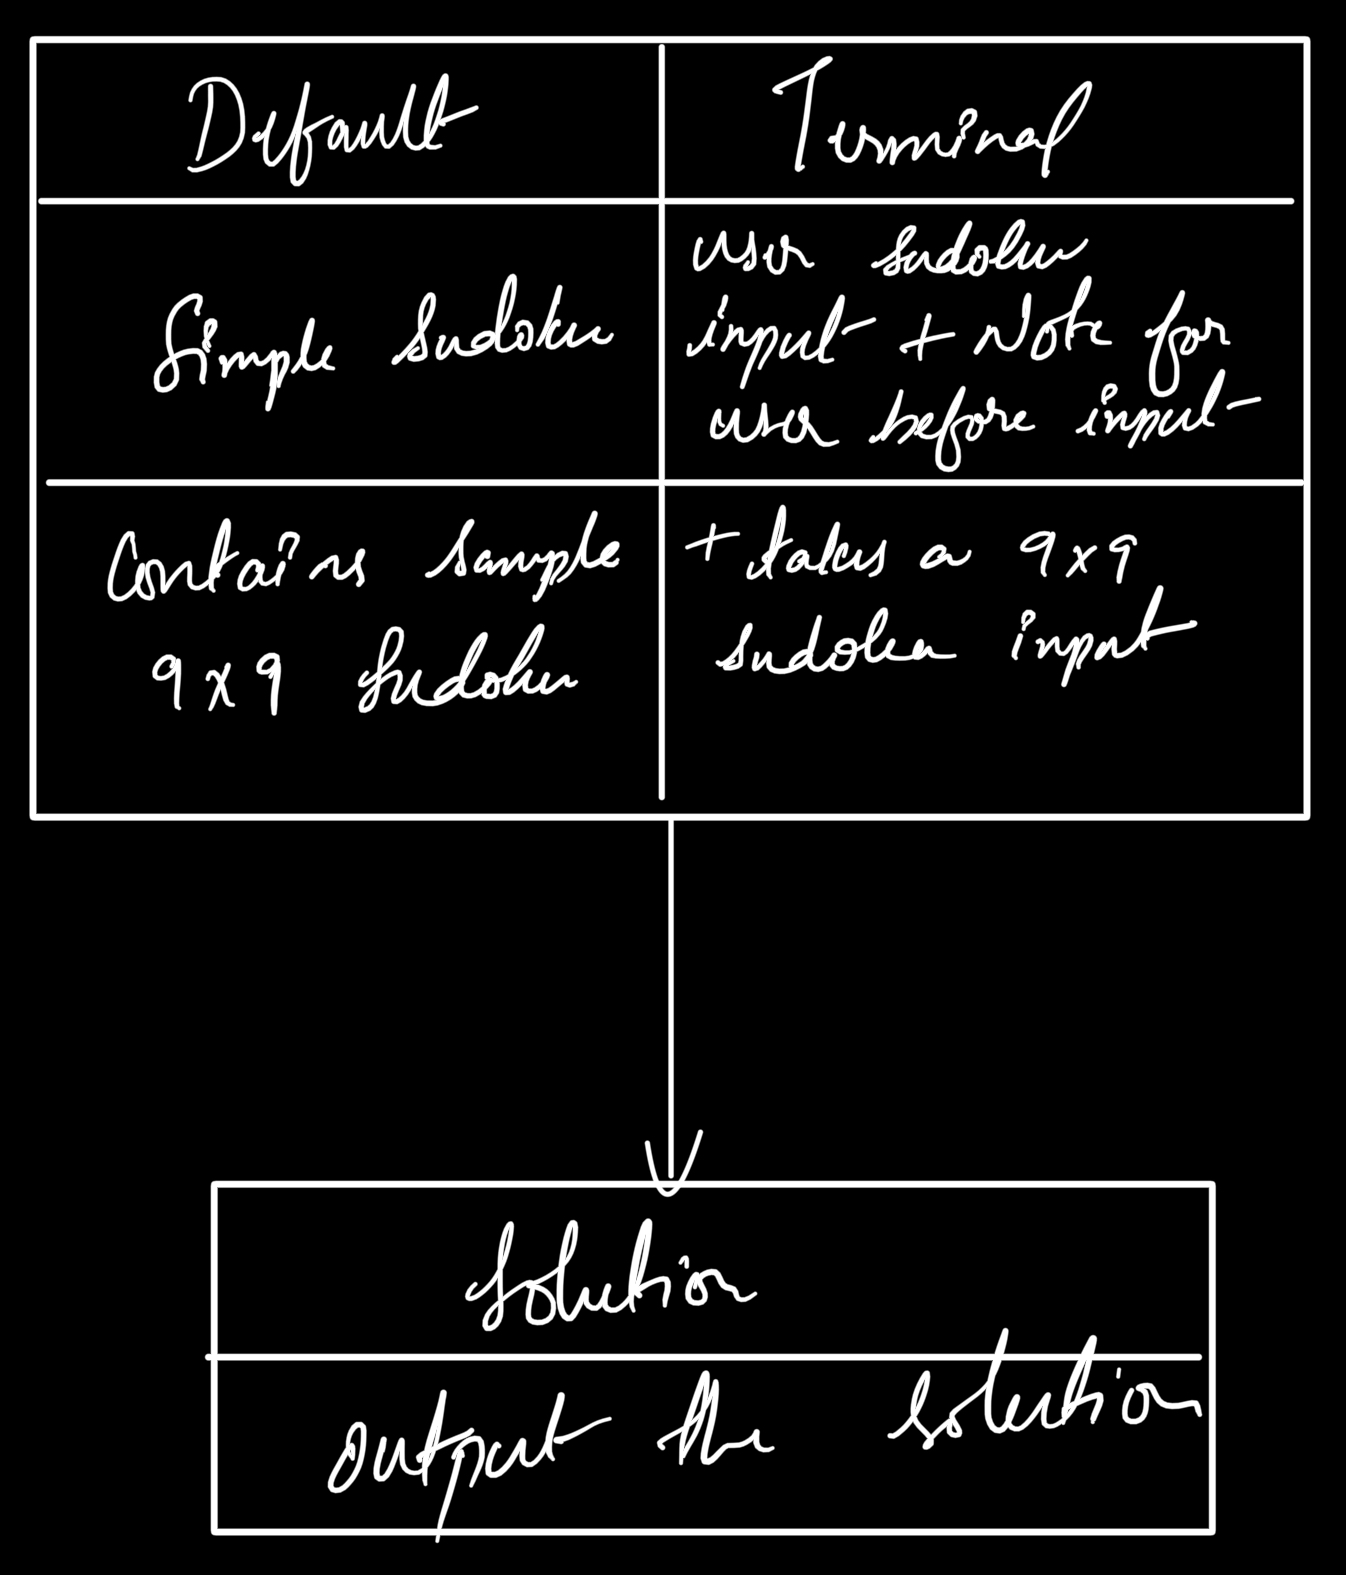 Default
Terminal
Simple Sudoku
user sudoku
input + Note for
user before input
Contains sample
9x9 Sudoku
+ takes a 9x9
sudoku input
Solution
output the solution